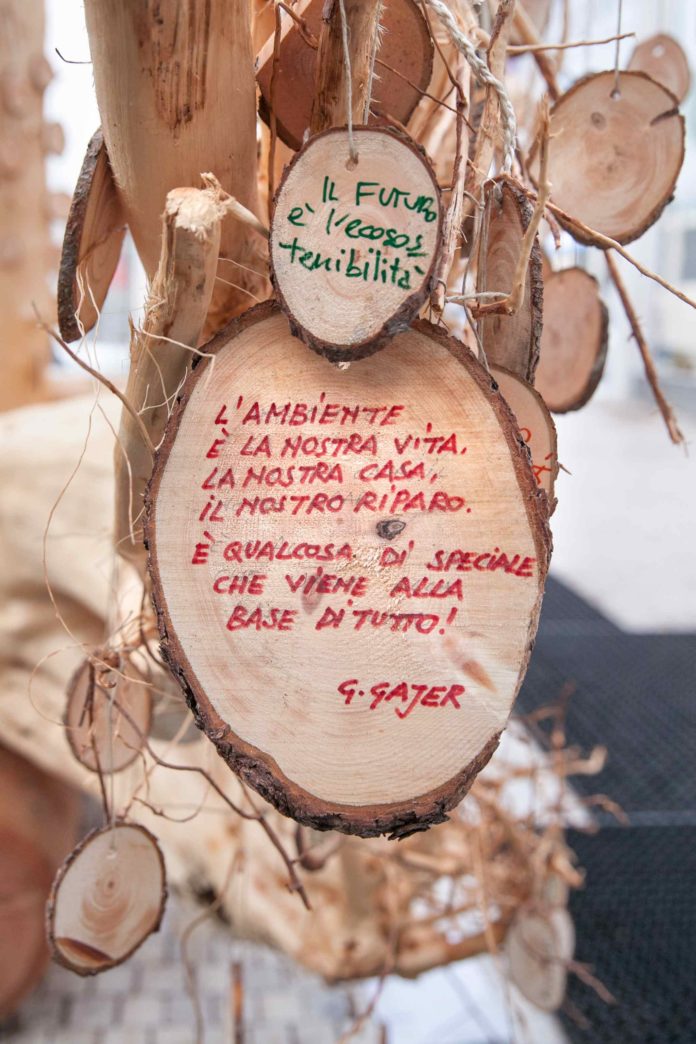 IL FUTURO
è l'ecosos
tenibilità
L'AMBIENTE
È LA NOSTRA VITA.
LA NOSTRA CASA,
iL NOSTRO RIPARO.
È QUALCOSA Di SPECIALE
CHE VIENE ALLA
BASE Di TUTTO!
G. GAJER